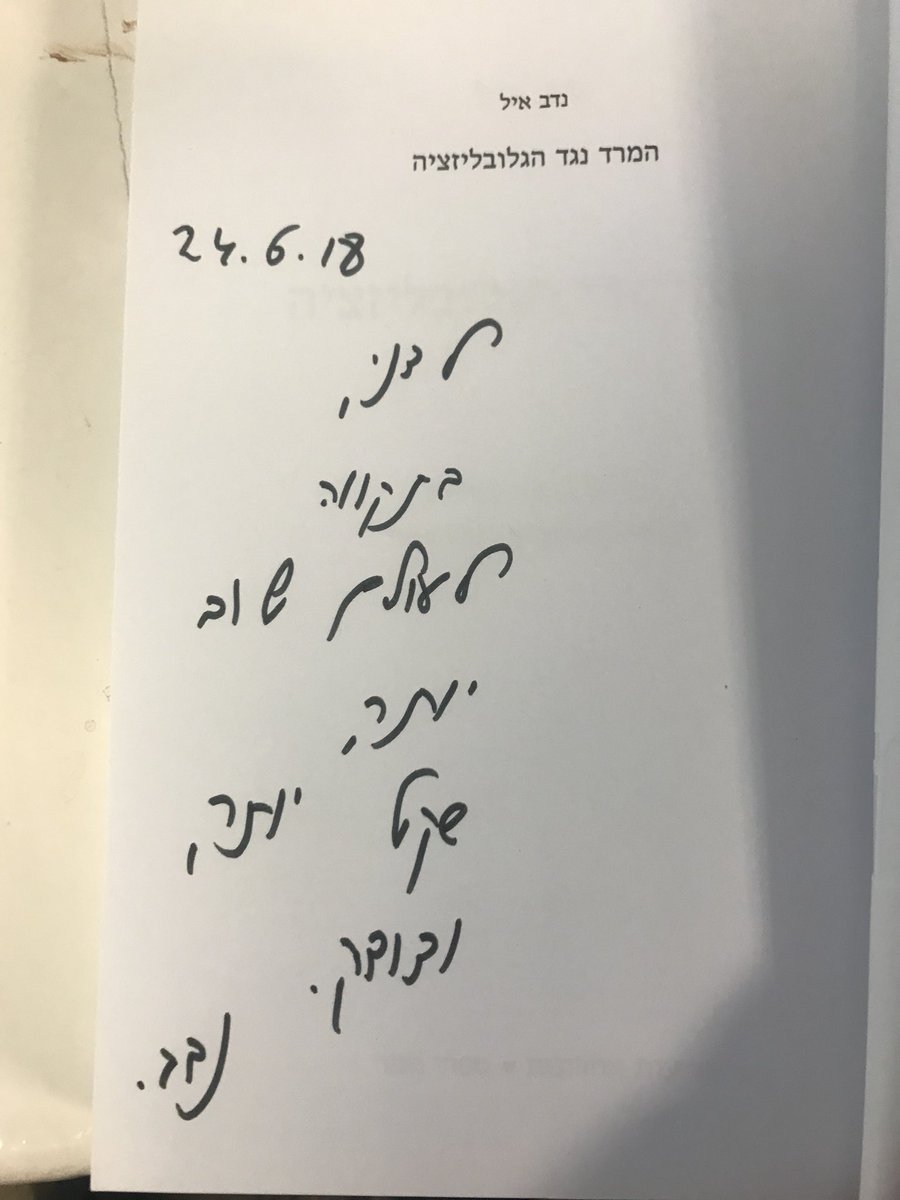 נדב איל
המרד נגד הגלובליזציה
24.6.18
לדני,
בתקווה
לעולם טוב
יותר,
שקט יותר,
וצודק.
נדב.